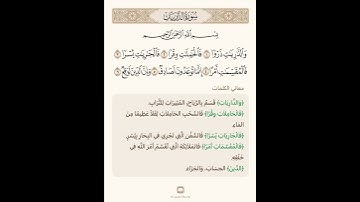 سُورَةُ الذَّارِيَاتِ
بِسْمِ اللَّهِ الرَّحْمَٰنِ الرَّحِيمِ
وَالذَّارِيَاتِ ذَرْوًا ١ فَالْحَامِلَاتِ وِقْرًا ٢ فَالْجَارِيَاتِ يُسْرًا ٣
فَالْمُقَسِّمَاتِ أَمْرًا ٤ إِنَّمَا تُوعَدُونَ لَصَادِقٌ ٥ وَإِنَّ الدِّينَ لَوَاقِعٌ ٦
معاني الكلمات
﴿وَالذَّارِيَاتِ﴾ قَسَمٌ بِالرِّيَاحِ، المُثِيرَاتِ لِلتُّرَابِ.
﴿فَالْحَامِلَاتِ وِقْرًا﴾ فَالسُّحُبِ الحَامِلَاتِ ثِقَلًا عَظِيمًا مِنَ
المَاءِ.
﴿فَالْجَارِيَاتِ يُسْرًا﴾ فَالسُّفُنِ الَّتِي تَجْرِي فِي البِحَارِ بِيُسْرٍ.
﴿فَالْمُقَسِّمَاتِ أَمْرًا﴾ فَالمَلَائِكَةِ الَّتِي تُقَسِّمُ أَمْرَ اللَّهِ فِي
خَلْقِهِ.
﴿الدِّينَ﴾ الحِسَابَ، وَالجَزَاءَ.